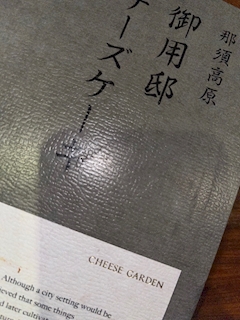 那須高原
御用邸
チーズケーキ
CHEESE GARDEN
Although a city setting would be
that some things
later